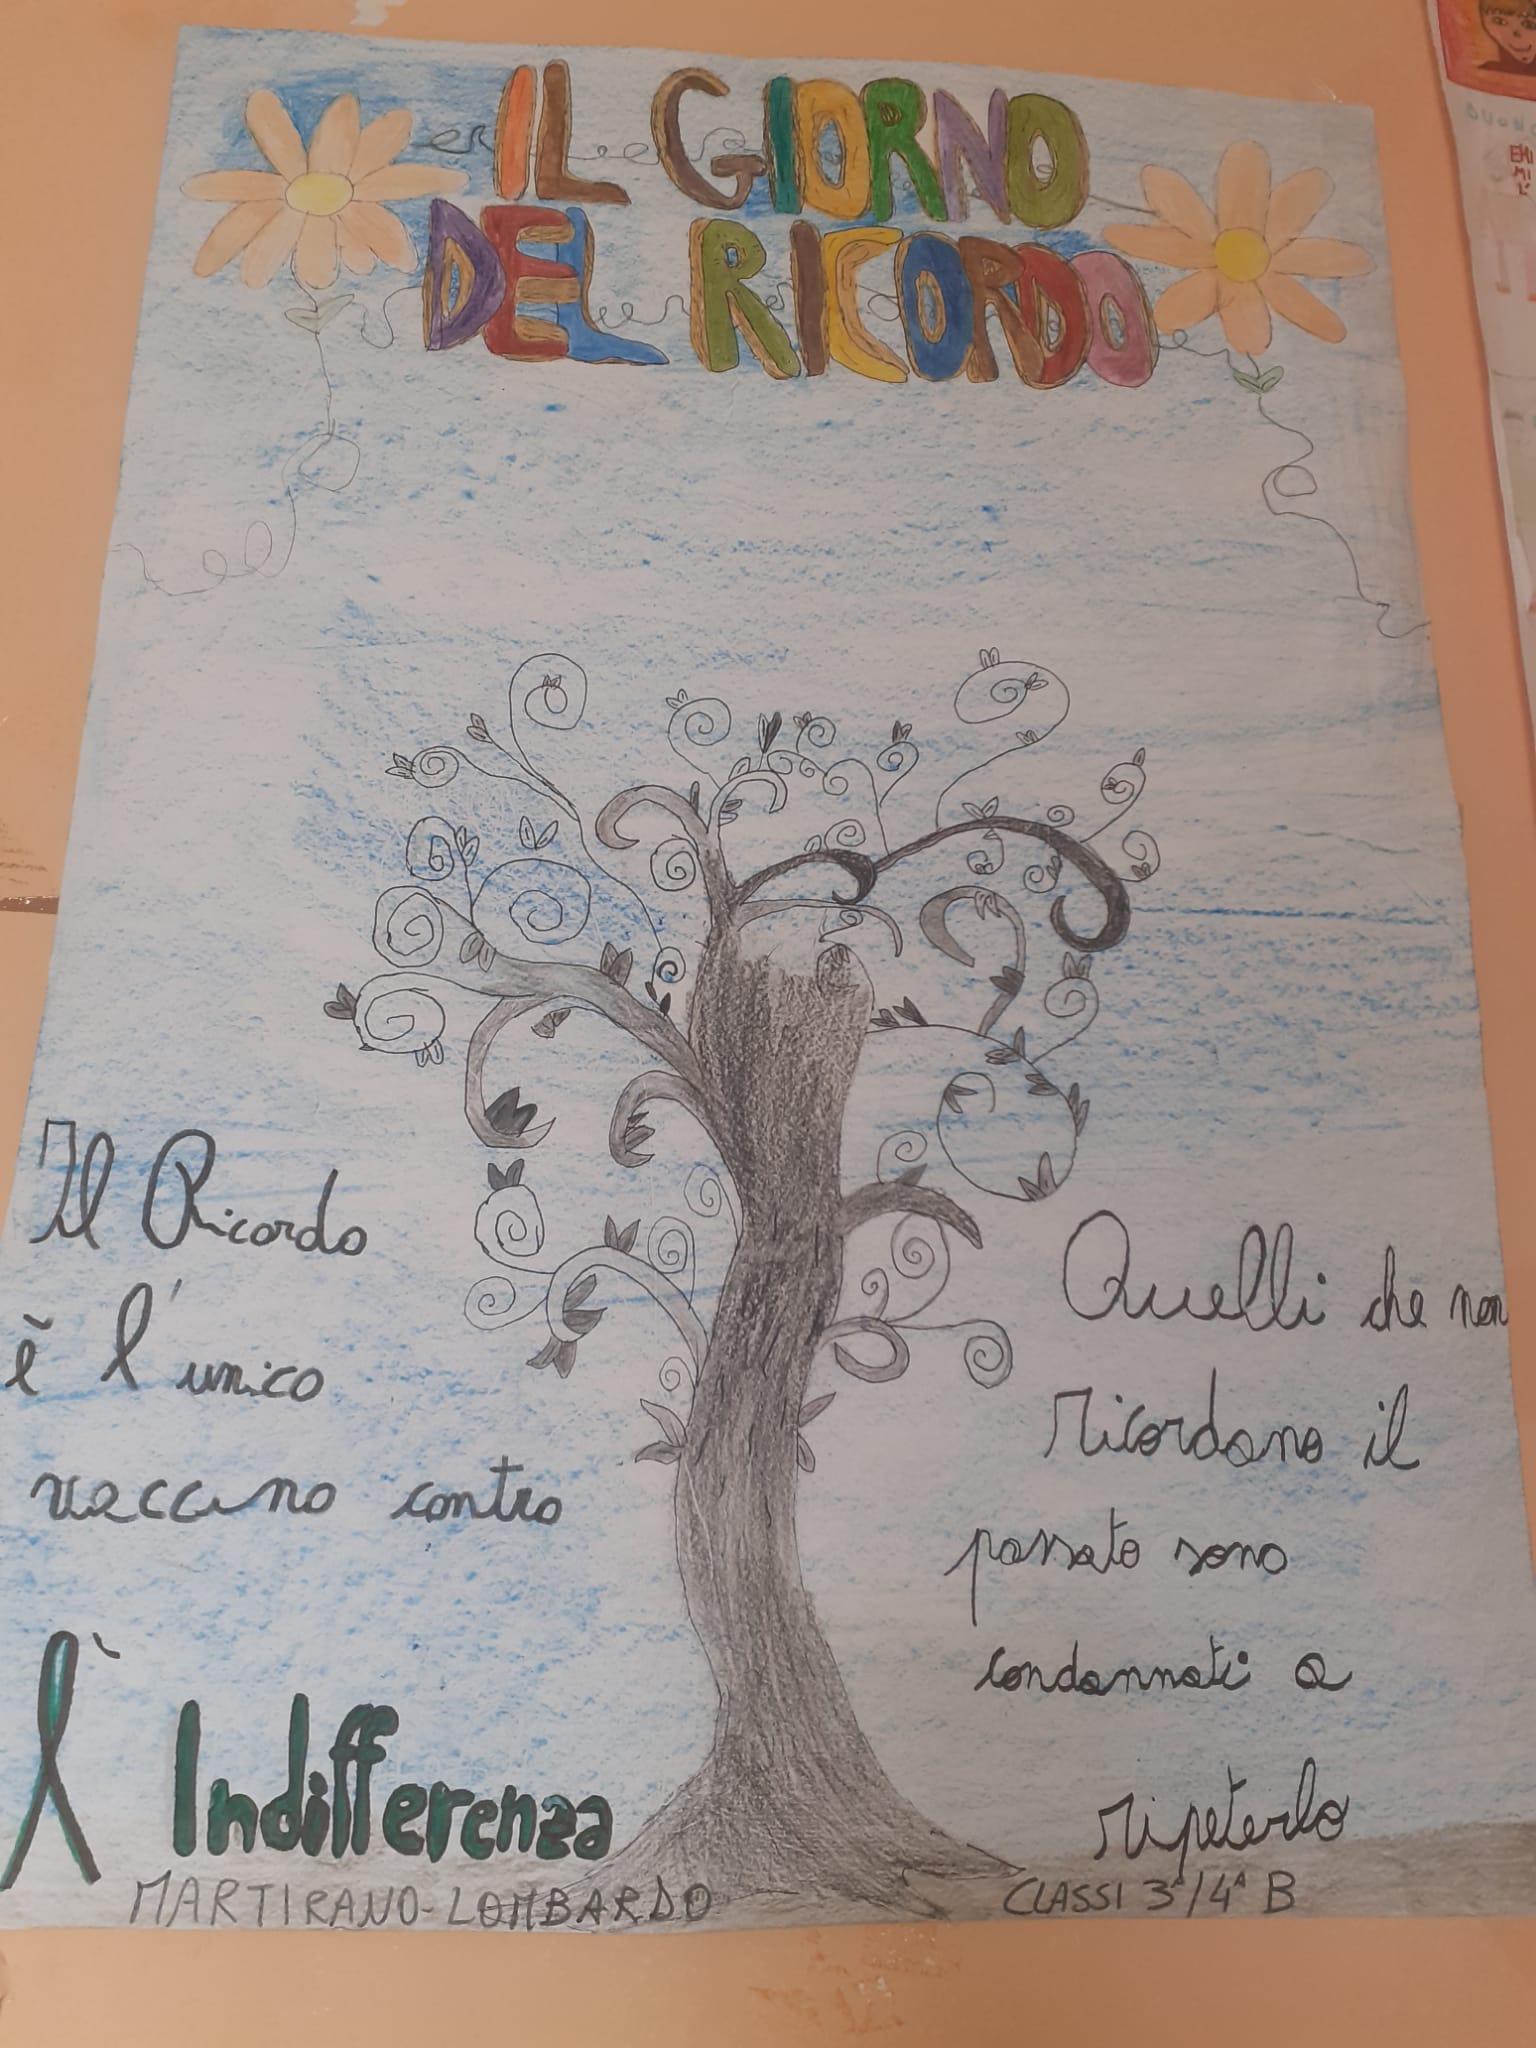 IL GIORNO
DEL RICORDO
Il Ricordo
è l'unico
vaccino contro
l'Indifferenza
Quelli che non
ricordano il
passato sono
condannati a
ripeterlo
MARTIRANO-LOMBARDO
CLASSI 3ª/4ª B